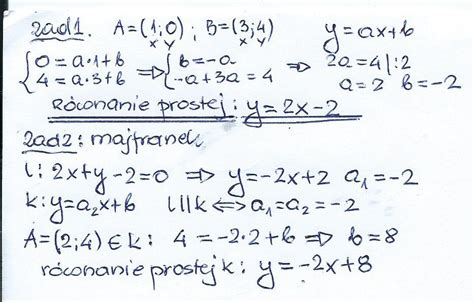 zad1. A=(1;0) ; B=(3;4) y=ax+b
x y x y
{0=a·1+b ⇒ {b=-a ⇒ 2a=4|:2
{4=a·3+b {-a+3a=4 a=2 b=-2
Równanie prostej: y=2x-2
zad2: majfranek
l: 2x+y-2=0 ⇒ y=-2x+2 a₁=-2
k: y=a₂x+b l||k ⇔ a₁=a₂=-2
A=(2;4)∈k: 4=-2·2+b ⇒ b=8
równanie prostej k: y=-2x+8